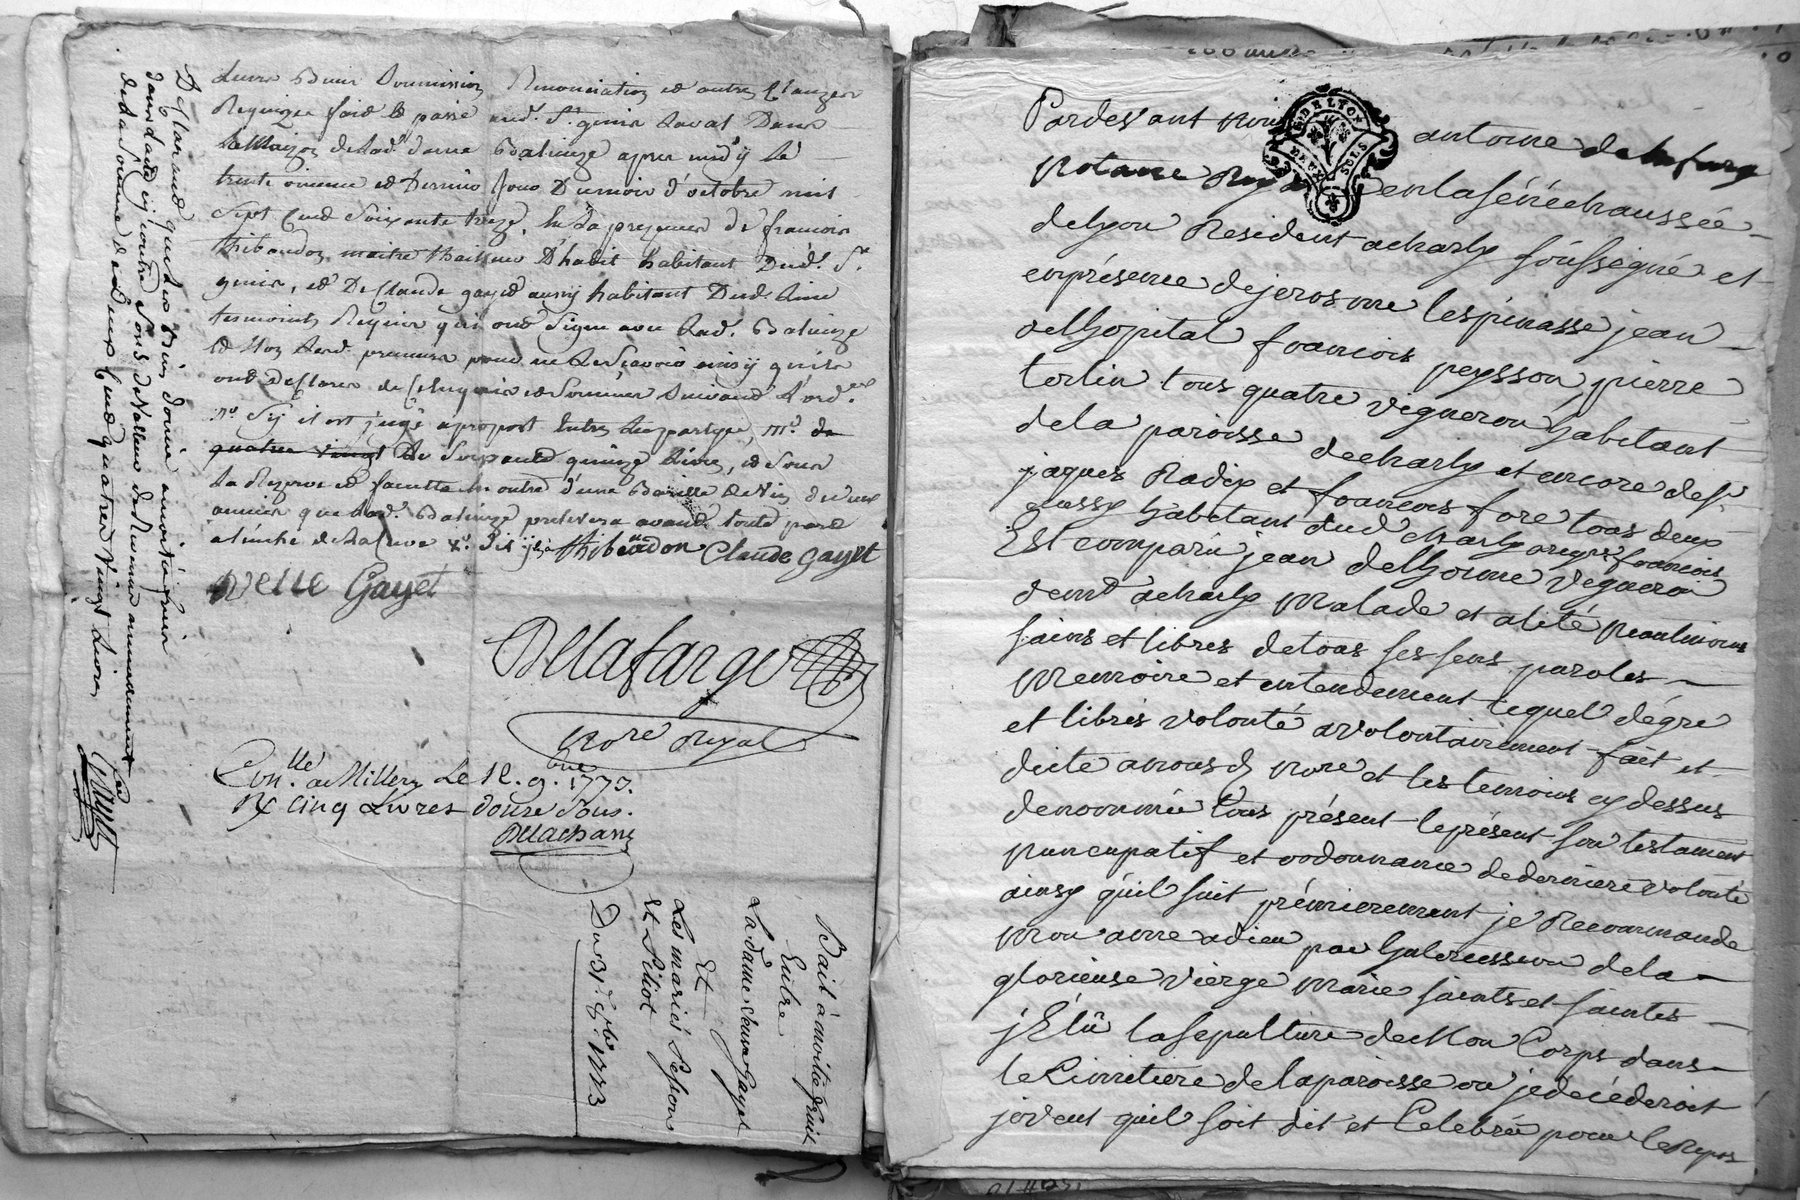 Leurs Biens Soumission, Renonciation et autres Clauzes
Requizes fait & passé aud. St. genis Laval Dans
la Maizon de lad. dame Balmeze apres midÿ le
trente unieme et Dernier Jour Du mois d'octobre mil
Sept Cent Soixante treze, En la presence de francois
thibaudon maitre thailleur D'habit habitant Dud. St.
genis, et De Claude gayet aussÿ habitant Dud. lieu
temoins Requis qui ont Signé avec lad.
et Non led. preneurs pour ne le Scavoir ainsÿ quils
ont Declarer de Ce Enquis et Sommés Suivant L'ord.
quatre vingt De Soixante quinze Livres, et Sous
La Rezerve et faculté En outre d'une Barille de Vin
que lad. prelevera avant toute part
thibaudon Claude Gayet
velle Gayet
Dellafarge
Nore Royal
Conllé a Millery Le 12. 9bre 1773.
Rx cinq Livres douse Sous.
Dellachans
Declarant que les Biens donné a moitié fruit
dans Lacte cÿ contre Sont de Valleur de Revenu annuelement
de la Somme de Deux Cent quatre Vingt Livres
Gayet
Bail à moitié fruit
Entre
La dame veuve Gayet
Et
Les mariés
Et
Du 31. 8bre 1773
Pardevant Nous antoine delafarge
Notaire Royal en la sénéchaussée
de lyon Resident a charly soussigné et
en présence de jerosme lespinasse jean
delhopital francois peysson pierre
tous quatre vigneron habitant
de la paroisse de charly et encore de Sr.
jaques Radix et francois fore tous deux
habitant dud charly
Est comparu jean delhorme Vigneron
demt a charly Malade et alité neanlmoins
sains et libres de tous ses sens paroles
Memoire et entendement lequel de gré
et libres volonté a volontairement fait et
dicté a nous d Nore et les temoins cy dessus
denommée tous présent le présent son testament
nuncupatif et ordonnance de derniere volonté
ainsy qu'il suit prémierement je Recommande
mon ame a dieu par Intercession de la
glorieuse Vierge Marie saints et saintes
j'Elû la sepulture de Mon Corps dans
le Cimitiere de la paroisse ou je décéderoit
je veut quil soit dit et Celebrée pour le Repos
G. DE LYON
DEUX SOLS